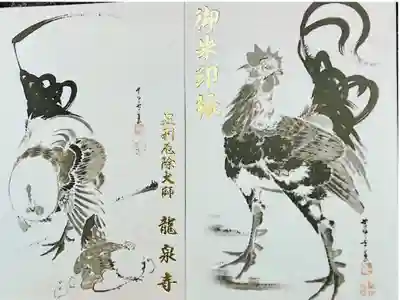 御朱印帳
足利厄除大師 龍泉寺